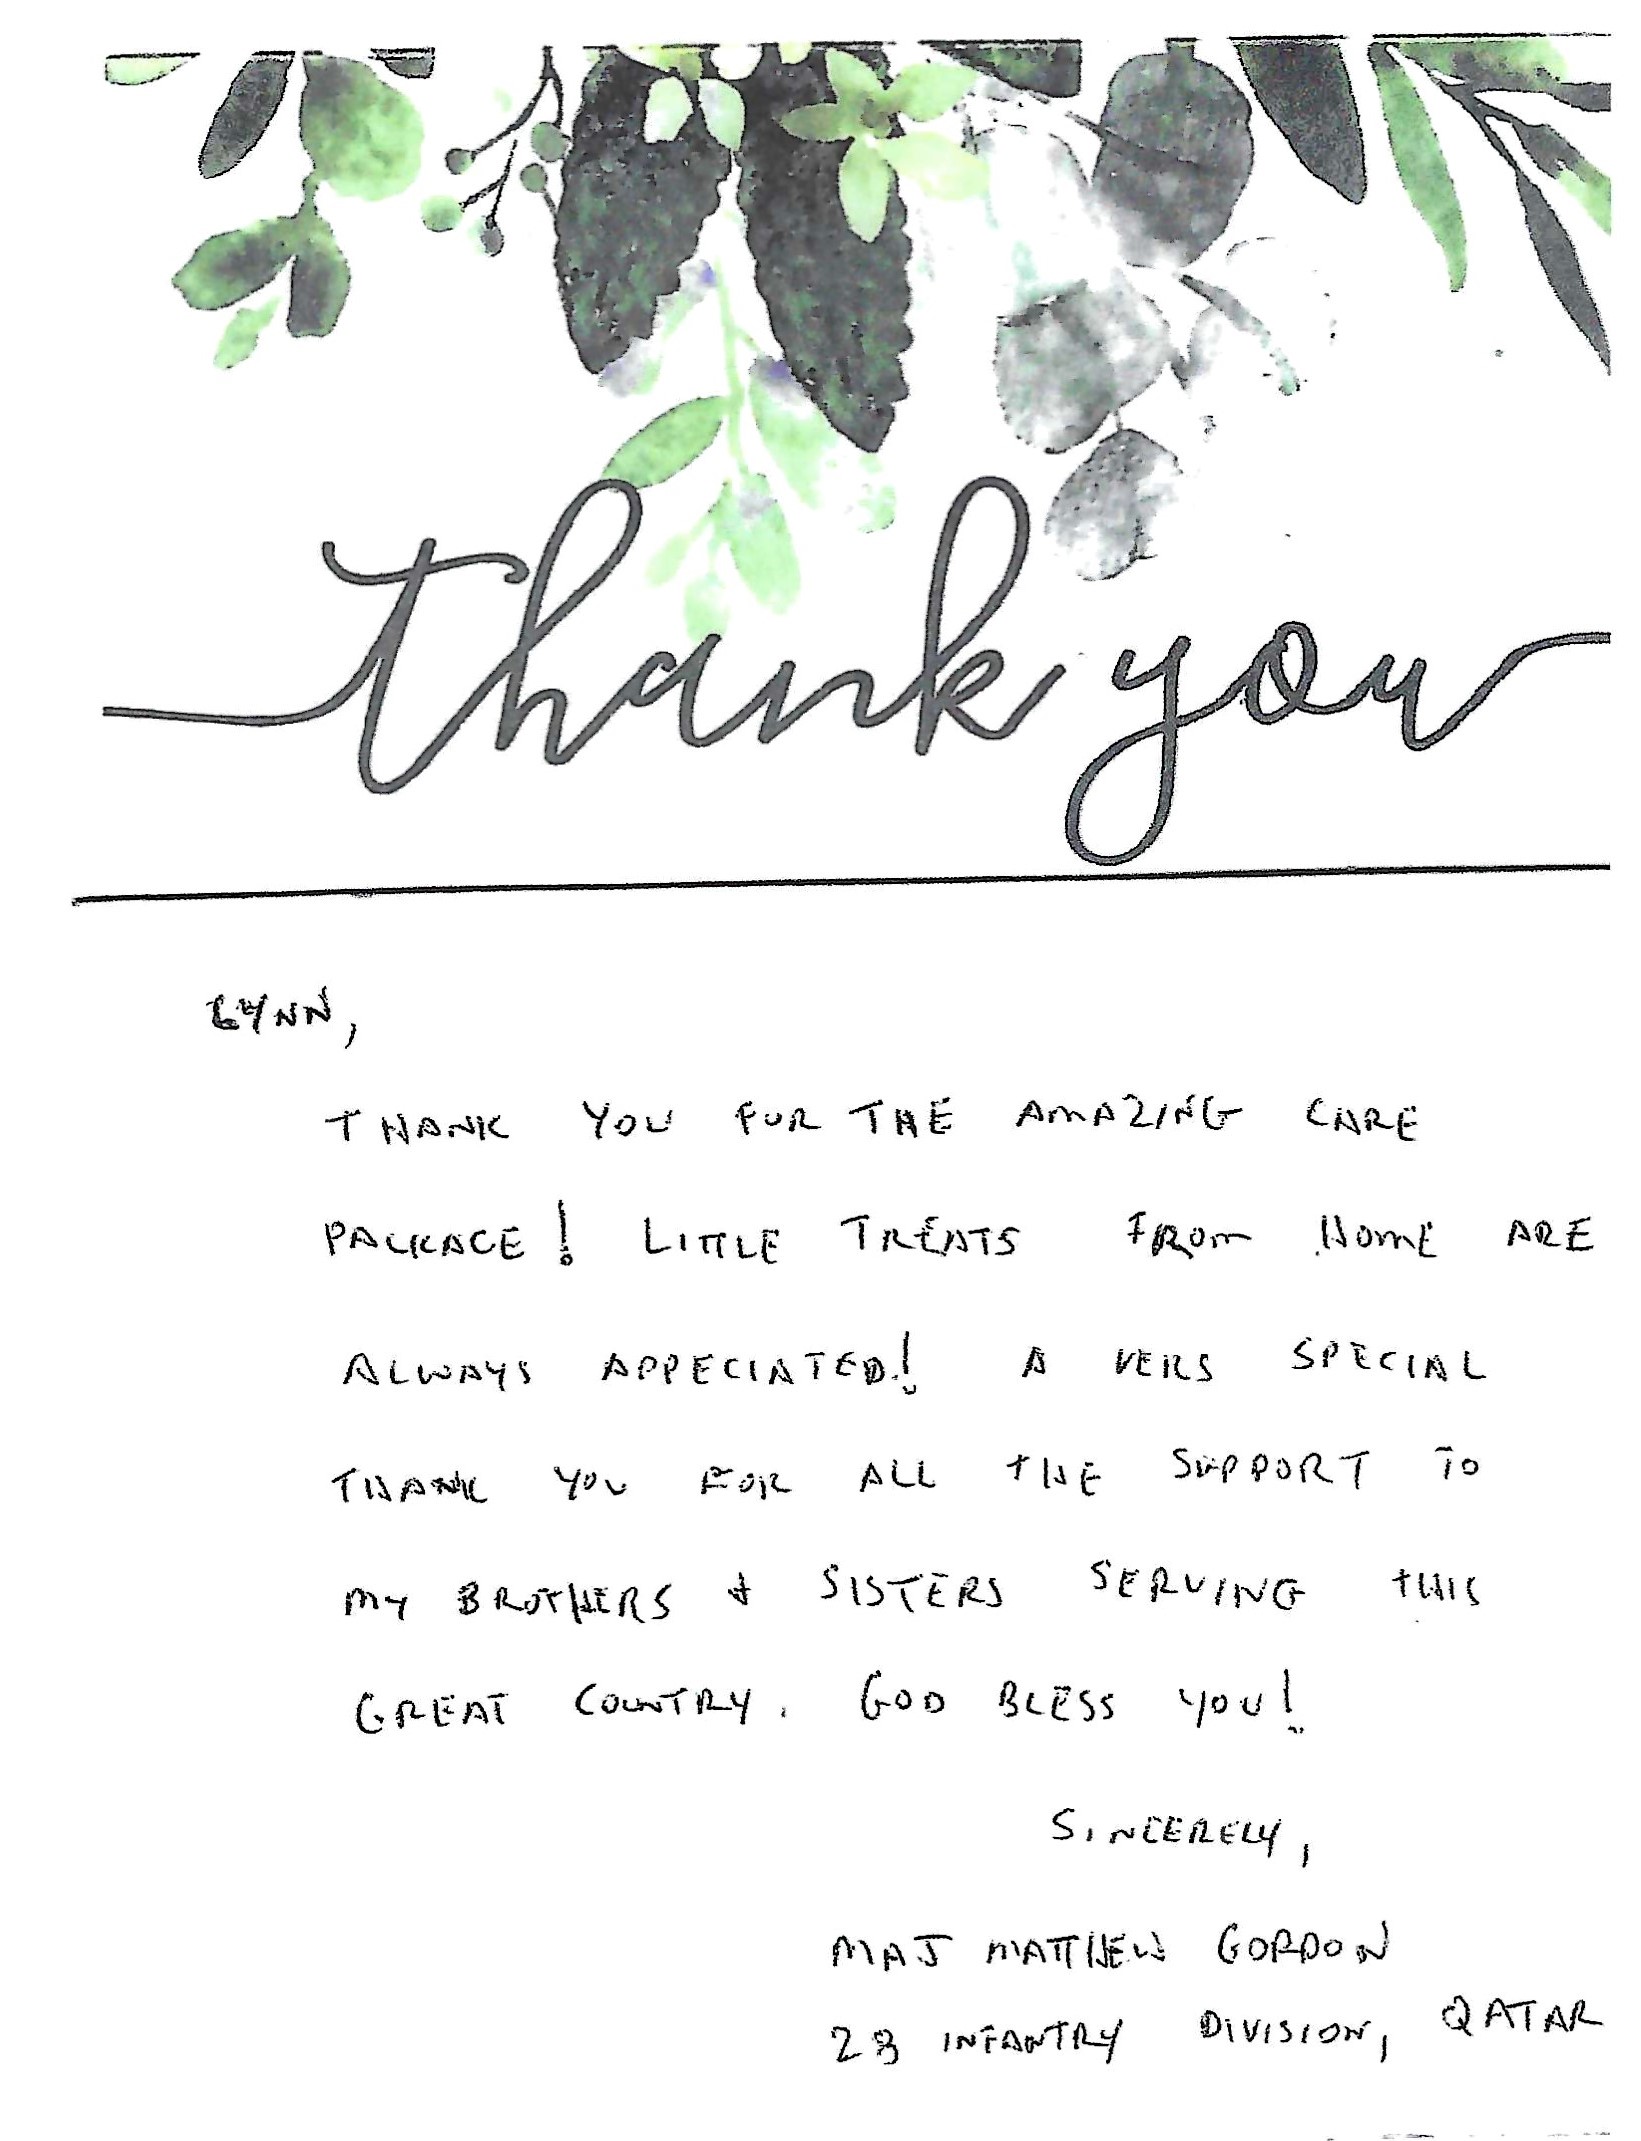 thank you
LYNN,
THANK YOU FOR THE AMAZING CARE
PACKAGE! LITTLE TREATS FROM HOME ARE
ALWAYS APPECIATED! A VERY SPECIAL
THANK YOU FOR ALL THE SUPPORT TO
MY BROTHERS & SISTERS SERVING THIS
GREAT COUNTRY. GOD BLESS YOU!
SINCERELY,
MAJ MATTHEW GORDON
28 INFANTRY DIVISION, QATAR